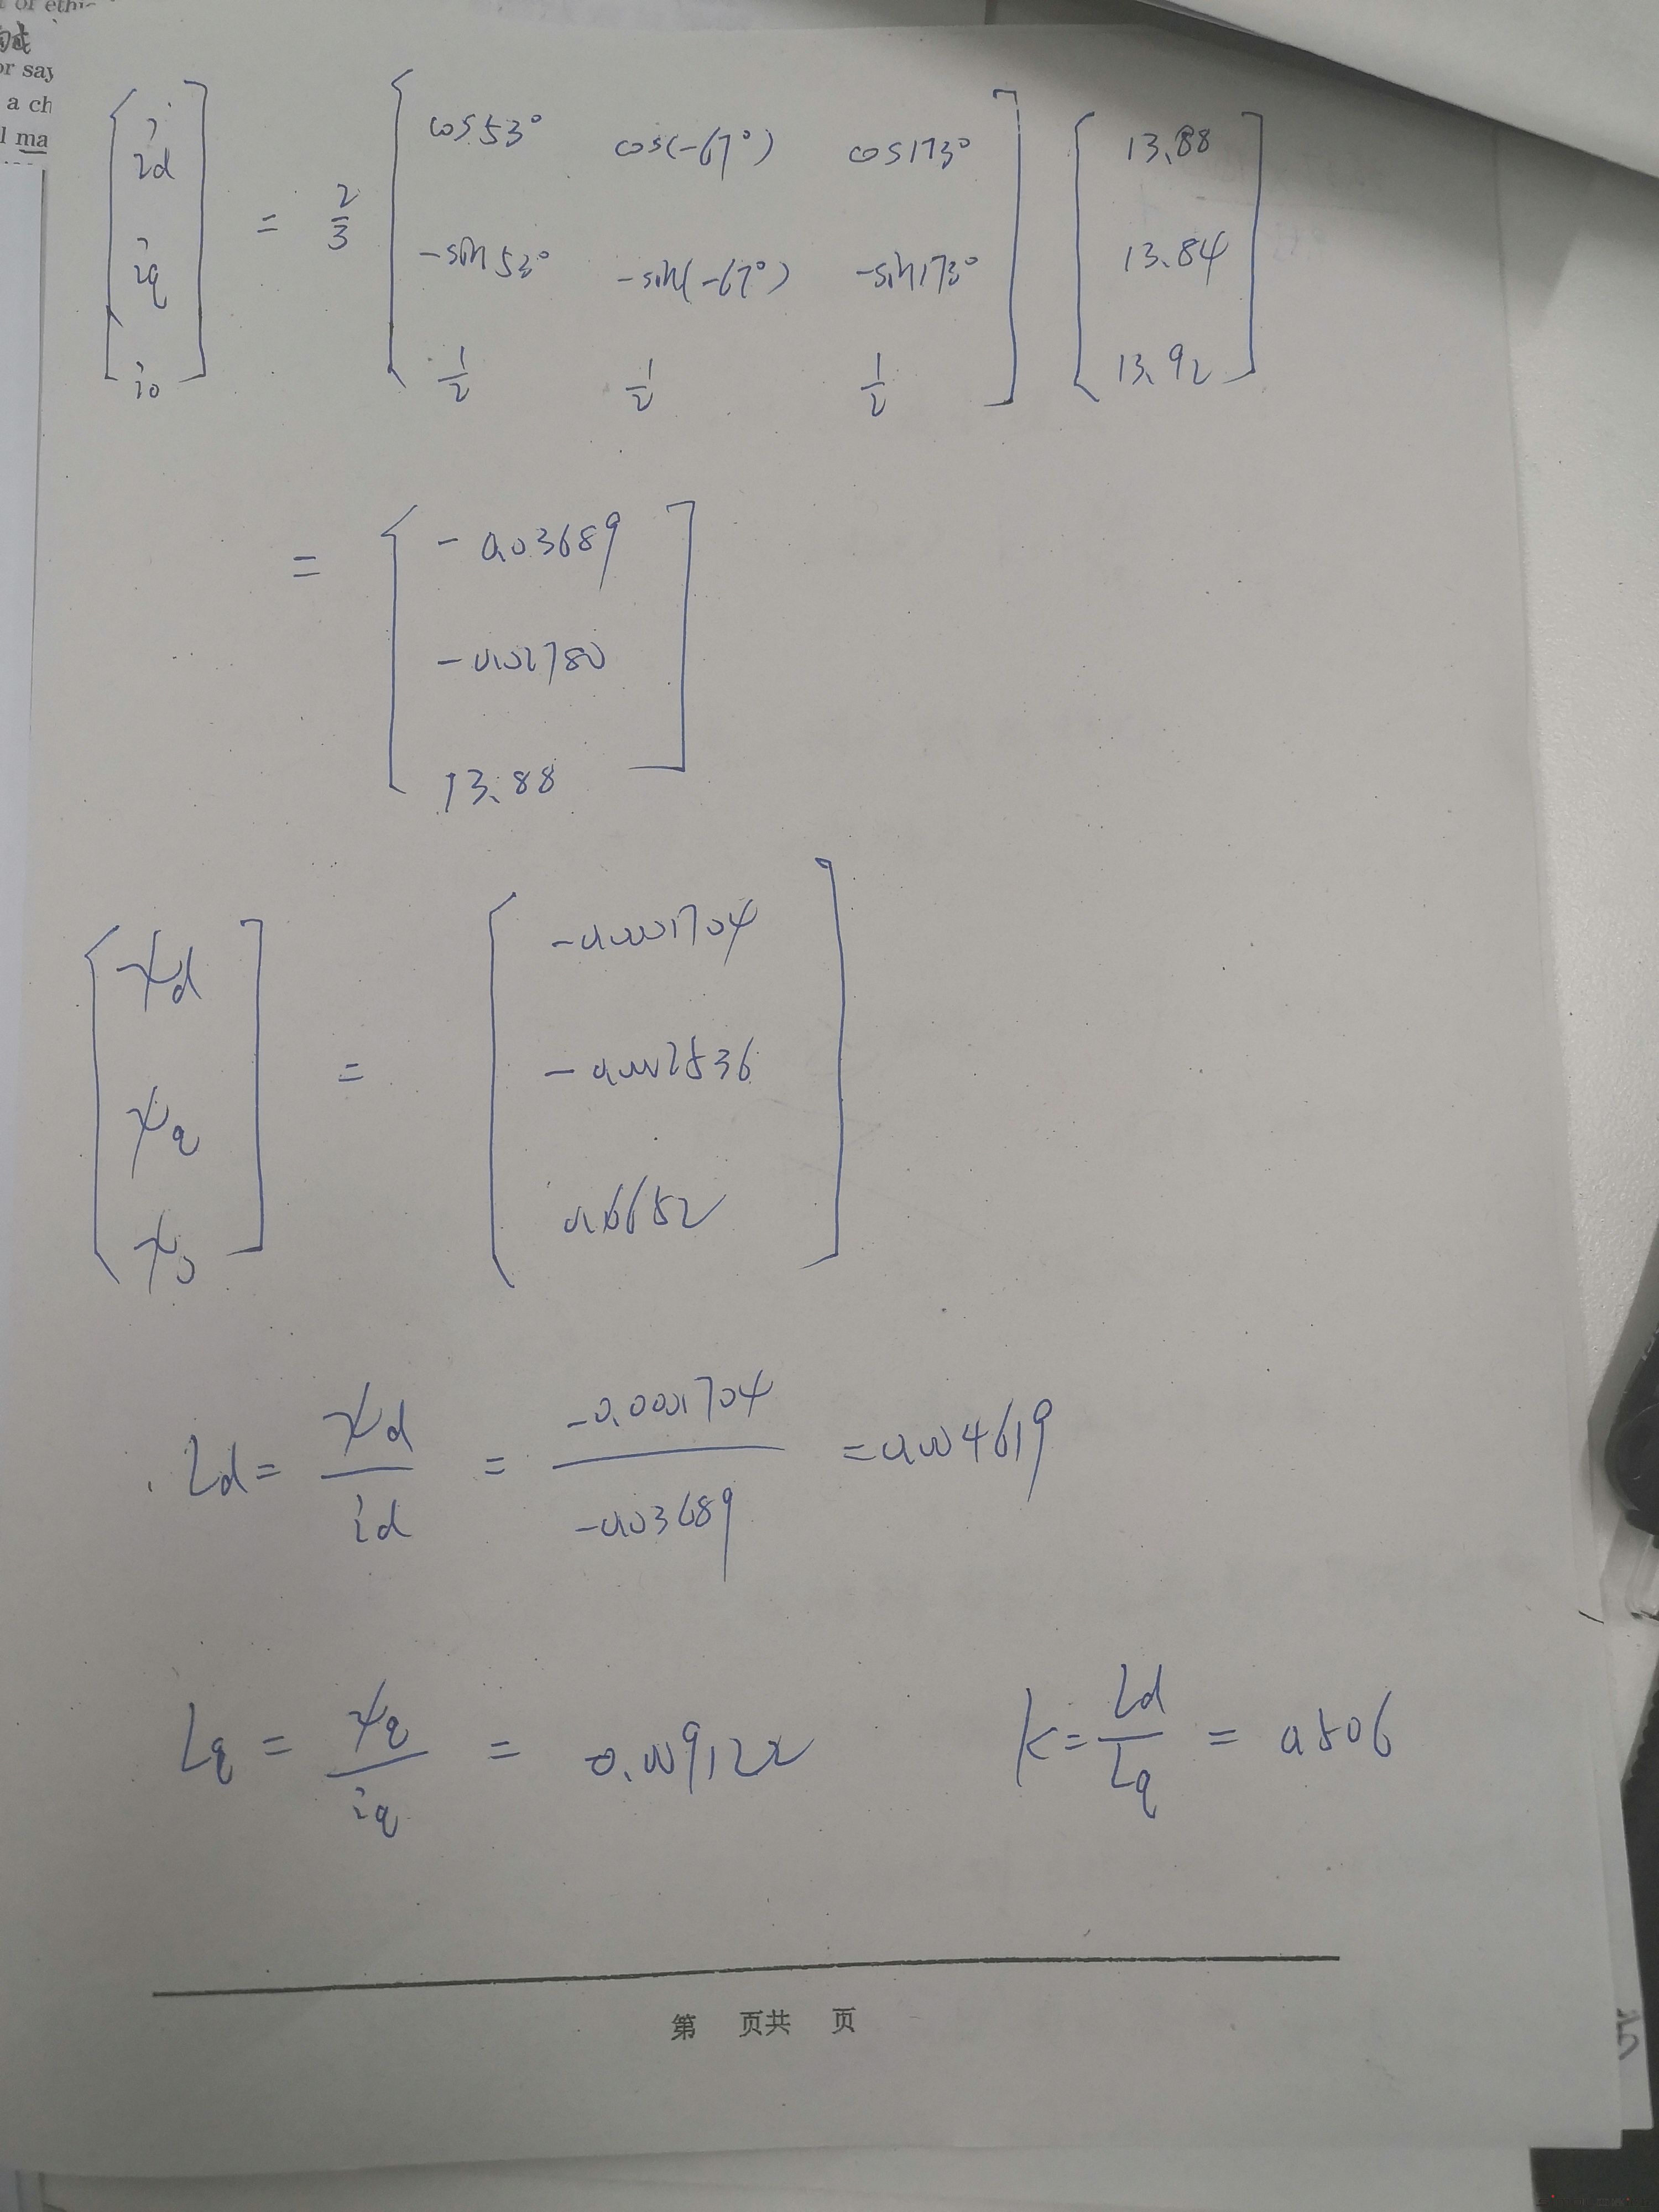 or say
a ch
l ma
[id iq i0] = 2/3 [cos53° cos(-67°) cos173°; -sin53° -sin(-67°) -sin173°; 1/2 1/2 1/2] [13.88; 13.84; 13.92]
= [-0.03689; -0.02780; 13.88]
[ψd; ψq; ψ0] = [-0.0001704; -0.0002536; 0.6652]
Ld = ψd/id = -0.0001704/-0.03689 = 0.004619
Lq = ψq/iq = 0.009122 K = Ld/Lq = 0.506
第 页共 页